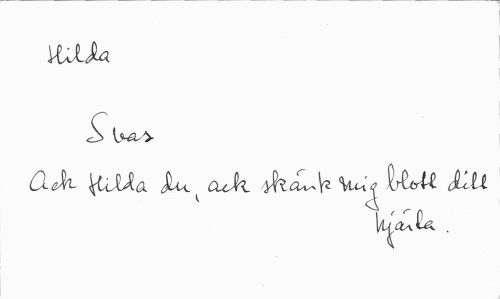 Hilda
Svar
Ack Hilda du, ack skänk mig blott ditt
hjärta.